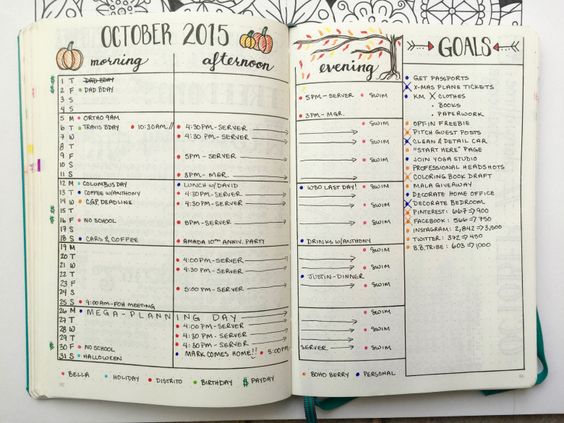 OCTOBER 2015
morning afternoon evening
GOALS
$ 1 T DAD BDAY
$ 2 F DAD BDAY 5PM-SERVER SWIM
3 S
4 S 3PM-MGR.
5 M ORTHO 9AM
6 T TRAVIS BDAY 10:30AM!! 4:30PM-SERVER SWIM
7 W 4:30 PM-SERVER
8 T SWIM
9 F 5PM-SERVER
10 S SWIM
11 S 3PM-MGR.
12 M COLUMBUS DAY LUNCH W/DAVID
13 T COFFEE W/ANTHONY W30 LAST DAY! SWIM
14 W CGP DEADLINE
$ 15 T SWIM
$ 16 F NO SCHOOL 5PM-SERVER
17 S SWIM
18 S CARS & COFFEE AMADA 10TH ANNIV. PARTY DRINKS W/ANTHONY
19 M
20 T 4:00 PM-SERVER SWIM
21 W 4:30 PM-SERVER
22 T JUSTIN-DINNER SWIM
23 F 5:00 PM-SERVER
24 S SWIM
25 S 9:00AM-FOH MEETING
26 M MEGA-PLANNING DAY
27 T 4:00 PM-SERVER SWIM
28 W 4:30 PM-SERVER
29 T 4:30 PM-SERVER SWIM
$ 30 F NO SCHOOL 4:30 PM-SERVER
31 S HALLOWEEN MARK COMES HOME!! 5:00PM SERVER SWIM
GET PASSPORTS
X-MAS PLANE TICKETS
KM X CLOTHES
BOOKS
PAPERWORK
OPT-IN FREEBIE
PITCH GUEST POSTS
CLEAN & DETAIL CAR
"START HERE" PAGE
JOIN YOGA STUDIO
PROFESSIONAL HEADSHOTS
COLORING BOOK DRAFT
MALA GIVEAWAY
DECORATE HOME OFFICE
DECORATE BEDROOM
PINTEREST: 667 → 900
FACEBOOK: 566 → 750
INSTAGRAM: 2,842 → 3,000
TWITTER: 372 → 450
B.B. TRIBE: 603 → 1,000
BELLA HOLIDAY DISTRITO BIRTHDAY $ PAYDAY
BOHO BERRY PERSONAL